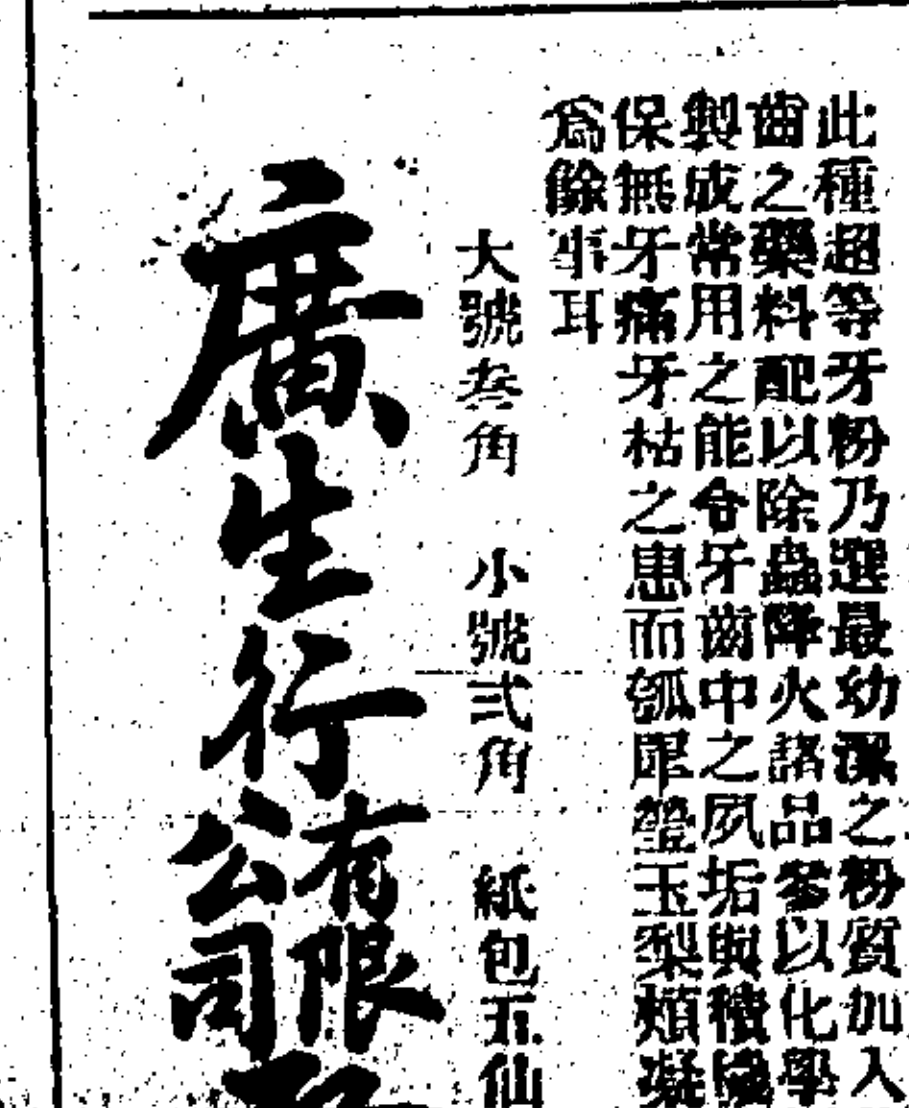 此種超等牙粉乃選最幼潔之粉質加入
齒之藥料配以除蟲降火諸品參以化學
製成常用之能令牙齒中之夙垢與積
保無牙痛牙枯之患而瓠犀瑩玉梨頰凝
爲餘事耳
大號叁角 小號弍角 紙包五仙
廣生行有限公司